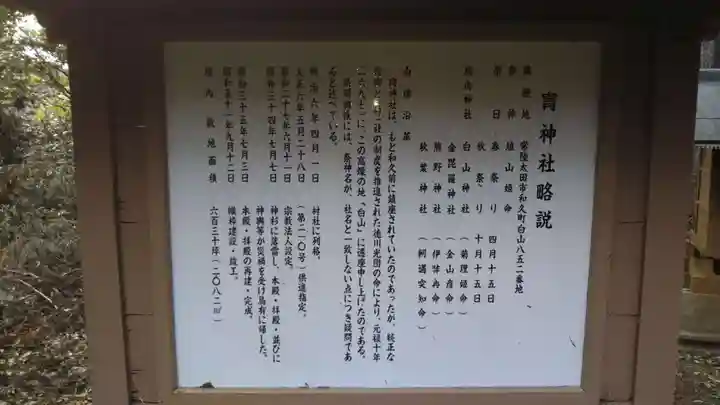 冑神社略説
鎮座地　常陸太田市和久町白山八五二番地
祭神　雄山姫命
祭日　春祭り　四月十五日
秋祭り　十月十五日
境内神社　白山神社（菊理姫命）
金毘羅神社（金山彦命）
熊野神社（伊弉冉命）
秋葉神社（軻遇突知命）
由緒沿革
同神社は、もと和久前に鎮座されていたのであったが、純正な
一郷一社の制度を推進された徳川光圀の命により、元禄十年
一六九七に、この高燥の地「白山」に遷座申し上げたのである。
祭神名が、社名と一致しない点につき疑問であ
ると述べている。
明治六年四月一日　村社に列格。
大正六年五月二十八日（第二一〇号）供進指定。
昭和二十七年六月十一日　宗教法人設立。
昭和三十四年七月七日　神杉に落雷し、本殿・拝殿・並びに
神輿等が災禍を受け烏有に帰した。
昭和三十五年七月三日　本殿・拝殿の再建・完成。
昭和五十一年九月十二日　建設・竣工。
境内敷地面積　六百三十坪（二〇八二㎡）